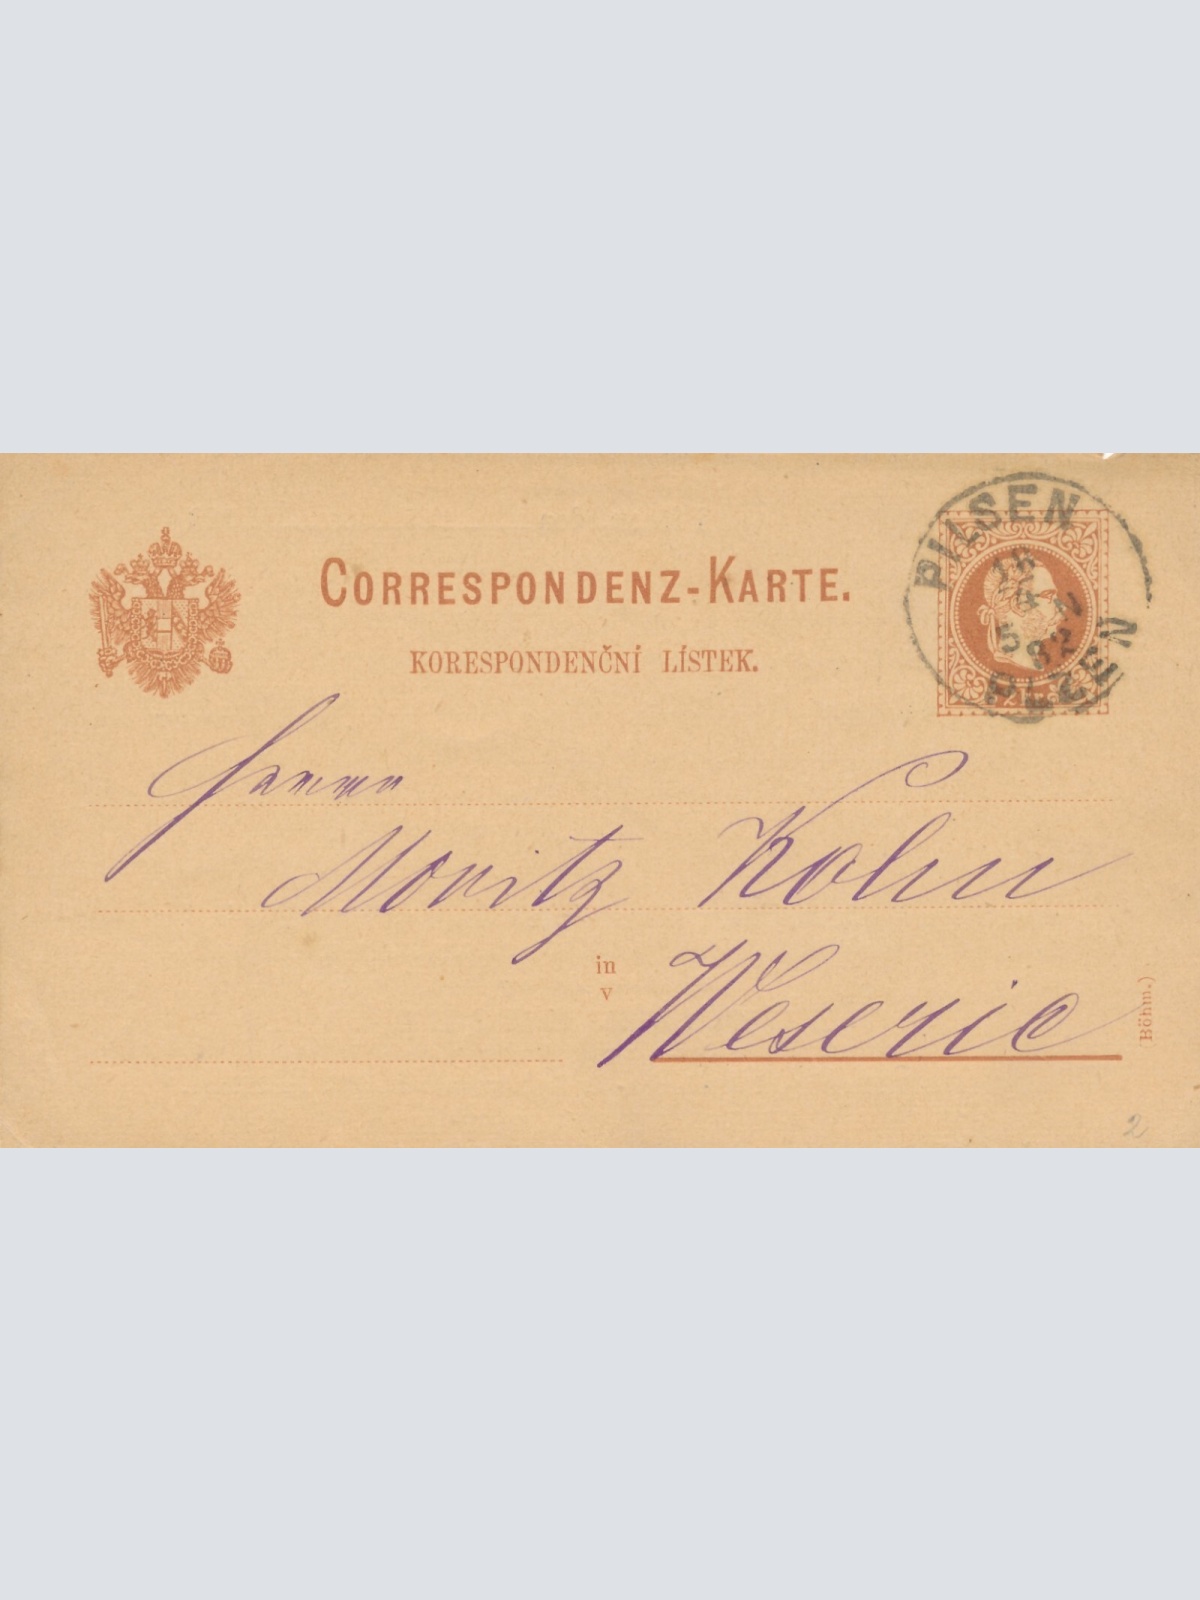 CORRESPONDENZ-KARTE.
KORESPONDENČNÍ LÍSTEK.
PILSEN
5 82
PLZEN
Herrn
Moritz Kohn
in
v
Weseric
(Böhm.)
2